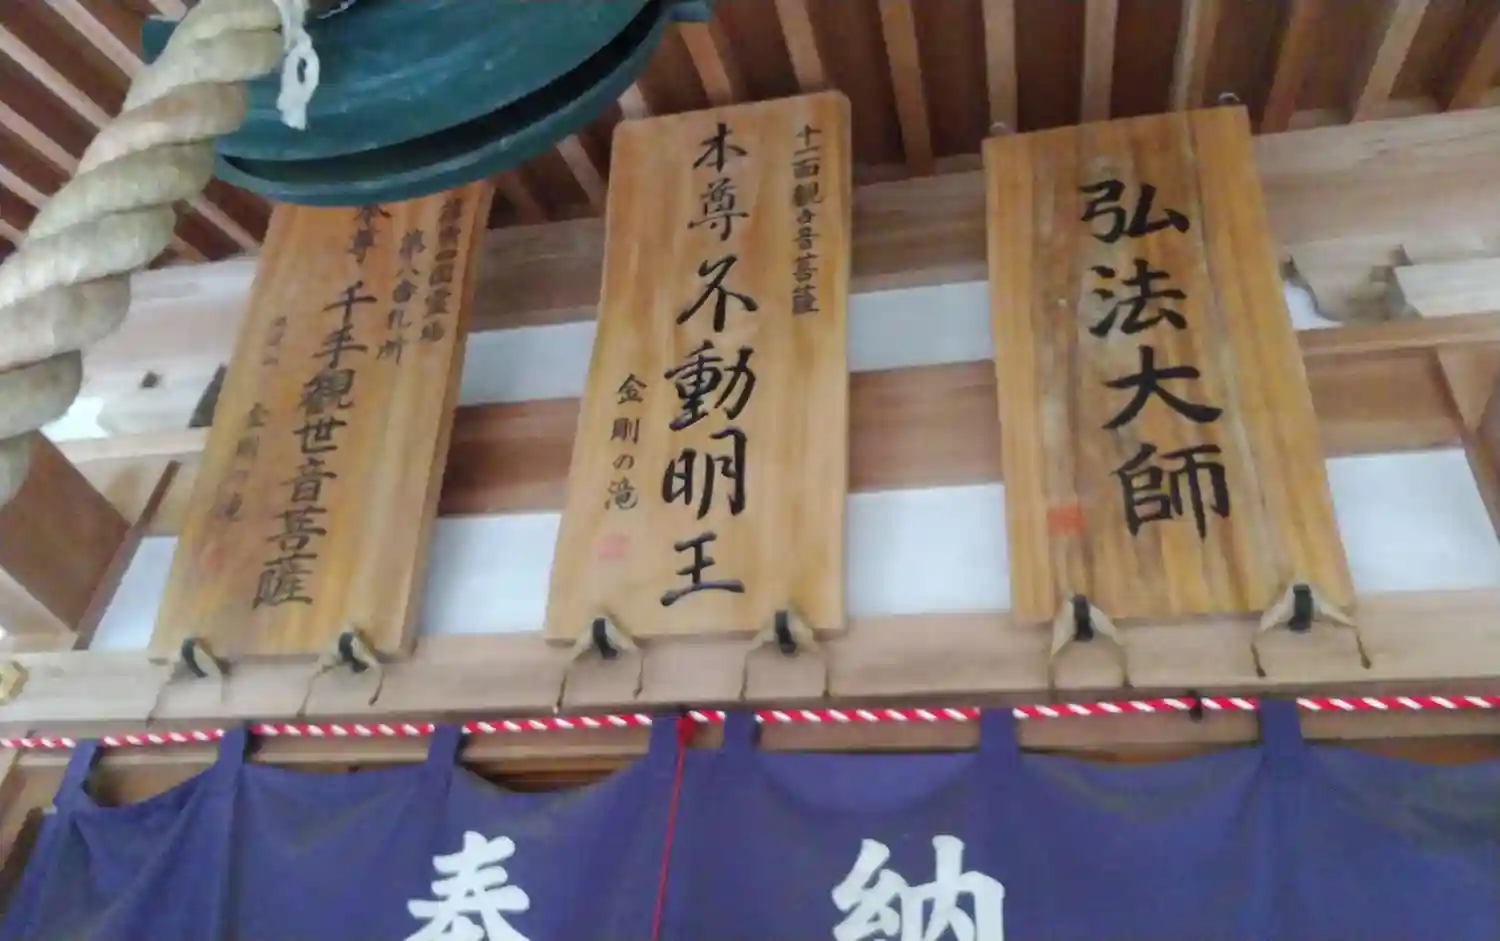 弘法大師
十一面観世音菩薩
本尊不動明王
金剛の滝
四国霊場
第八番札所
本尊・千手観世音菩薩
金剛の滝
奉納